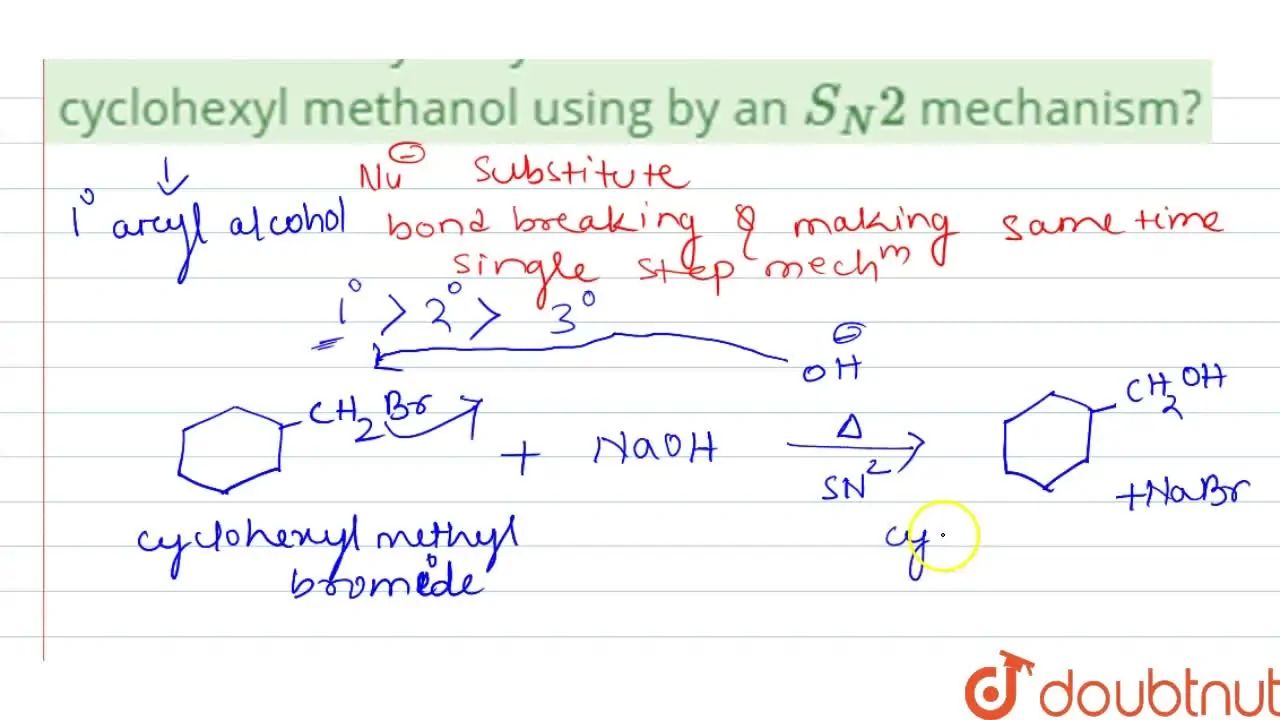 cyclohexyl methanol using by an S_N2 mechanism?
↓
1° arcyl alcohol
Nu⊖ substitute
bond breaking & making same time
single step mech^m
1° > 2° > 3°
⊖
OH
CH₂Br + NaOH Δ SN² CH₂OH + NaBr
cyclohexyl methyl bromide
cy
doubtnut